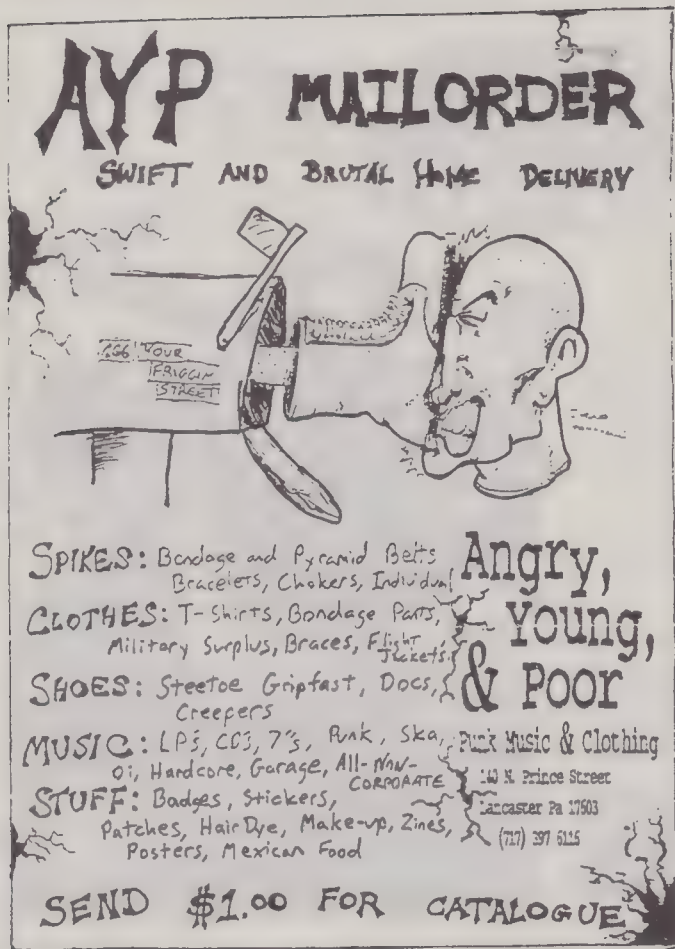 AYP MAILORDER
SWIFT AND BRUTAL HOME DELIVERY
666 YOUR
FRIGGIN
STREET
SPIKES: Bondage and Pyramid Belts
Bracelets, Chokers, Individual
CLOTHES: T-Shirts, Bondage Pants,
Military Surplus, Braces, Flight
Jackets
SHOES: Steetoe Gripfast, Docs,
Creepers
MUSIC: LPs, CDs, 7"s, Punk, Ska,
Oi, Hardcore, Garage, All-Non-
CORPORATE
STUFF: Badges, Stickers,
Patches, Hair Dye, Make-up, Zines,
Posters, Mexican Food
Angry,
Young,
& Poor
Punk Music & Clothing
140 N. Prince Street
Lancaster Pa 17603
(717) 397 6116
SEND $1.00 FOR CATALOGUE